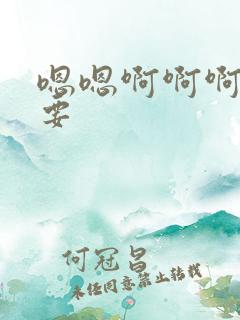 嗯嗯啊啊啊
要
何冠昌
未经同意禁止转载